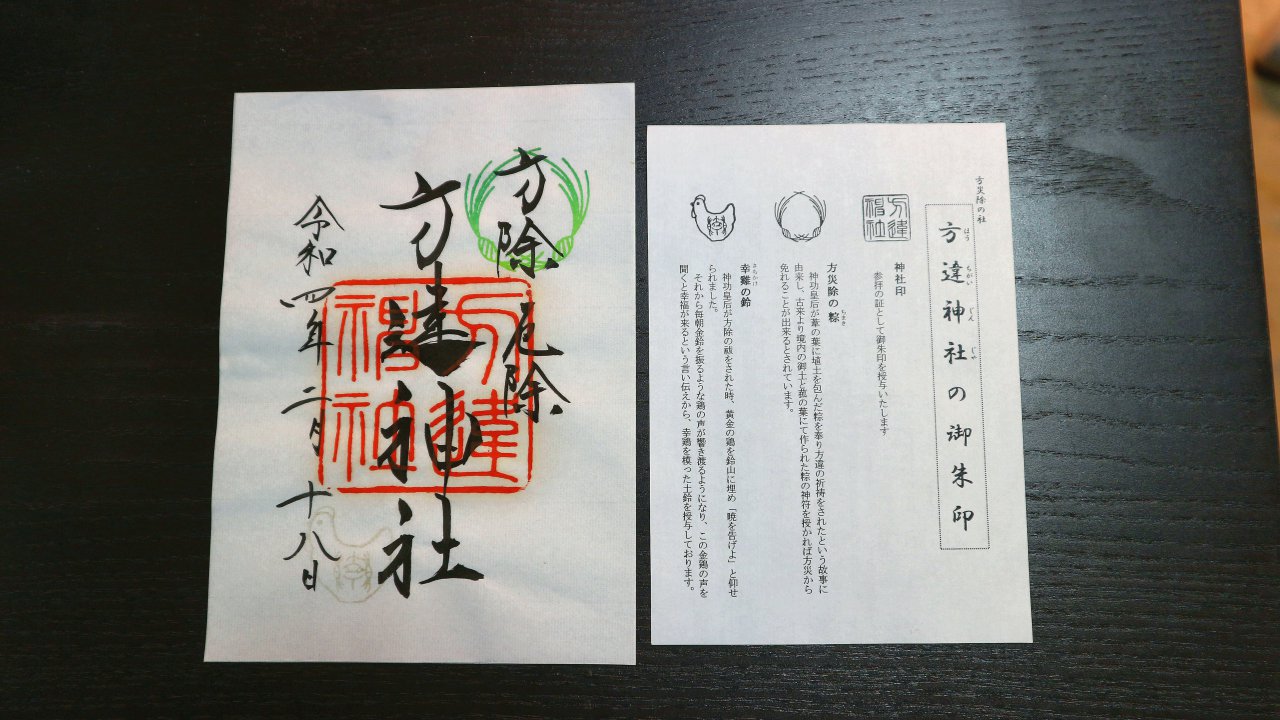 方除 厄除
方違神社
令和四年二月十八日
方違神社
方災除の社
方違神社の御朱印
ほう ちがい じん じゃ
方違神社
神社印
参拝の証として御朱印を授与いたします
方災除の粽
ちまき
神功皇后が葦の葉に埴土を包んだ粽を奉り方違の祈祷をされたという故事に
由来し、古来より境内の御土と菰の葉にて作られた粽の神符を授かれば方災から
免れることが出来るとされています。
幸鶏の鈴
さちかけ
神功皇后が方除の祓をされた時、黄金の鶏を鈴山に埋め「暁を告げよ」と仰せ
られました。
それから毎朝金鈴を振るような鶏の声が響き渡るようになり、この金鶏の声を
聞くと幸福が来るという言い伝えから、幸鶏を模った土鈴を授与しております。